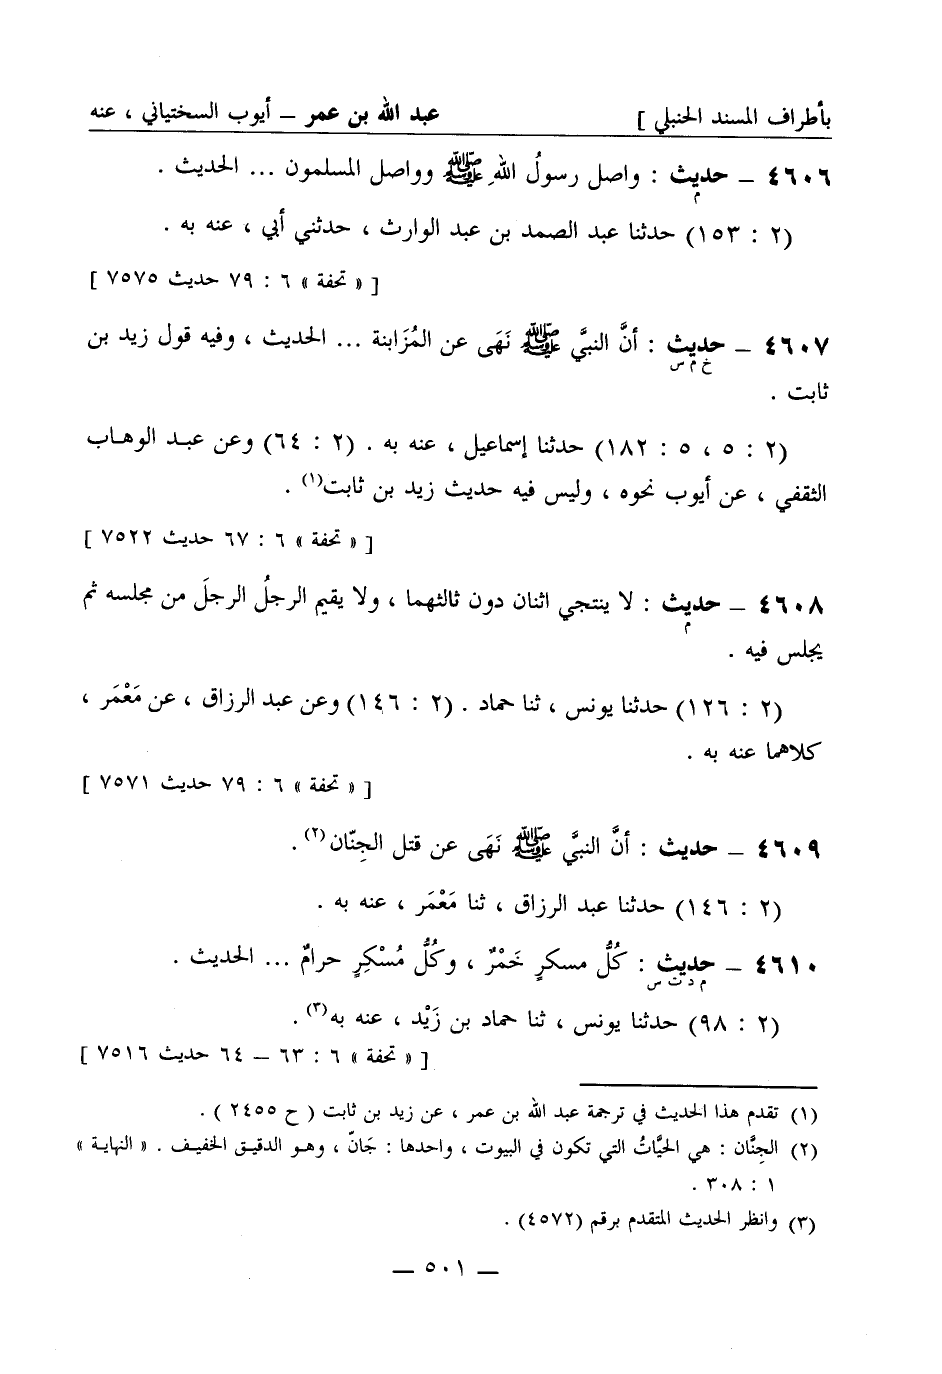 بأطراف المسند الحنبلي ] عبد الله بن عمر – أيوب السختياني ، عنه
٤٦٠٦ – حديث : واصل رسولُ اللهِ ﷺ وواصل المسلمون ... الحديث .
م
(٢ : ١٥٣) حدثنا عبد الصمد بن عبد الوارث ، حدثني أبي ، عنه به .
[ « تحفة » ٦ : ٧٩ حديث ٧٥٧٥ ]
٤٦٠٧ – حديث : أنَّ النبيَّ ﷺ نَهَى عن المُزَابنة ... الحديث ، وفيه قول زيد بن
خ م س
ثابت .
(٢ : ٥ ، ٥ : ١٨٢) حدثنا إسماعيل ، عنه به . (٢ : ٦٤) وعن عبد الوهاب
الثقفي ، عن أيوب نحوه ، وليس فيه حديث زيد بن ثابت(١) .
[ « تحفة » ٦ : ٦٧ حديث ٧٥٢٢ ]
٤٦٠٨ – حديث : لا ينتجي اثنان دون ثالثهما ، ولا يقيم الرجلُ الرجلَ من مجلسه ثم
م
يجلس فيه .
(٢ : ١٢٦) حدثنا يونس ، ثنا حماد . (٢ : ١٤٦) وعن عبد الرزاق ، عن مَعْمَر ،
كلاهما عنه به .
[ « تحفة » ٦ : ٧٩ حديث ٧٥٧١ ]
٤٦٠٩ – حديث : أنَّ النبيَّ ﷺ نَهَى عن قتل الجِنّان(٢) .
(٢ : ١٤٦) حدثنا عبد الرزاق ، ثنا مَعْمَر ، عنه به .
٤٦١٠ – حديث : كُلُّ مسكرٍ خَمْرٌ ، وكُلُّ مُسْكِرٍ حرامٌ ... الحديث .
م د ت س
(٢ : ٩٨) حدثنا يونس ، ثنا حماد بن زَيْد ، عنه به(٣) .
[ « تحفة » ٦ : ٦٣ – ٦٤ حديث ٧٥١٦ ]
(١) تقدم هذا الحديث في ترجمة عبد الله بن عمر ، عن زيد بن ثابت ( ح ٢٤٥٥ ) .
(٢) الجِنَّان : هي الحَيَّاتُ التي تكون في البيوت ، واحدها : جَانّ ، وهو الدقيق الخفيف . « النهاية »
١ : ٣٠٨ .
(٣) وانظر الحديث المتقدم برقم (٤٥٧٢) .
– ٥٠١ –